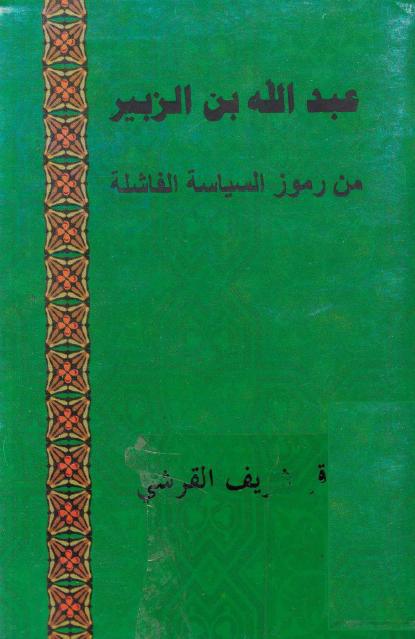 عبد الله بن الزبير
من رموز السياسة الفاشلة
القرشي